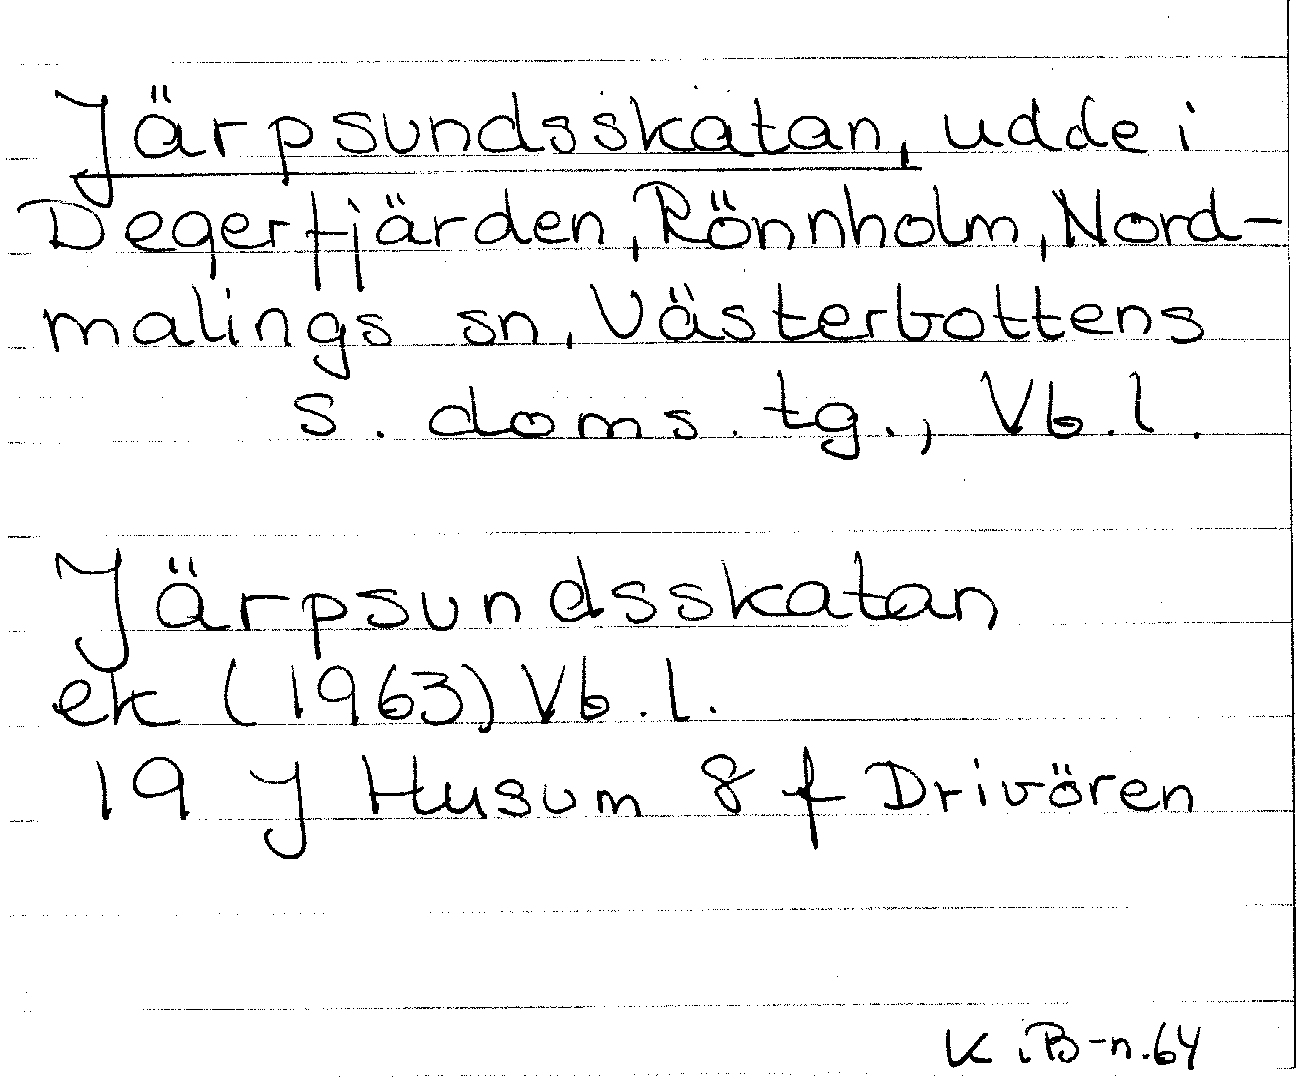 Järpsundsskatan, udde i
Degerfjärden, Rönnholm, Nord-
malings sn, Västerbottens
s. doms. tg., Vb. l.
Järpsundsskatan
ek (1963) Vb. l.
19 J Husum 8 f Drivören
K i B-n. 64